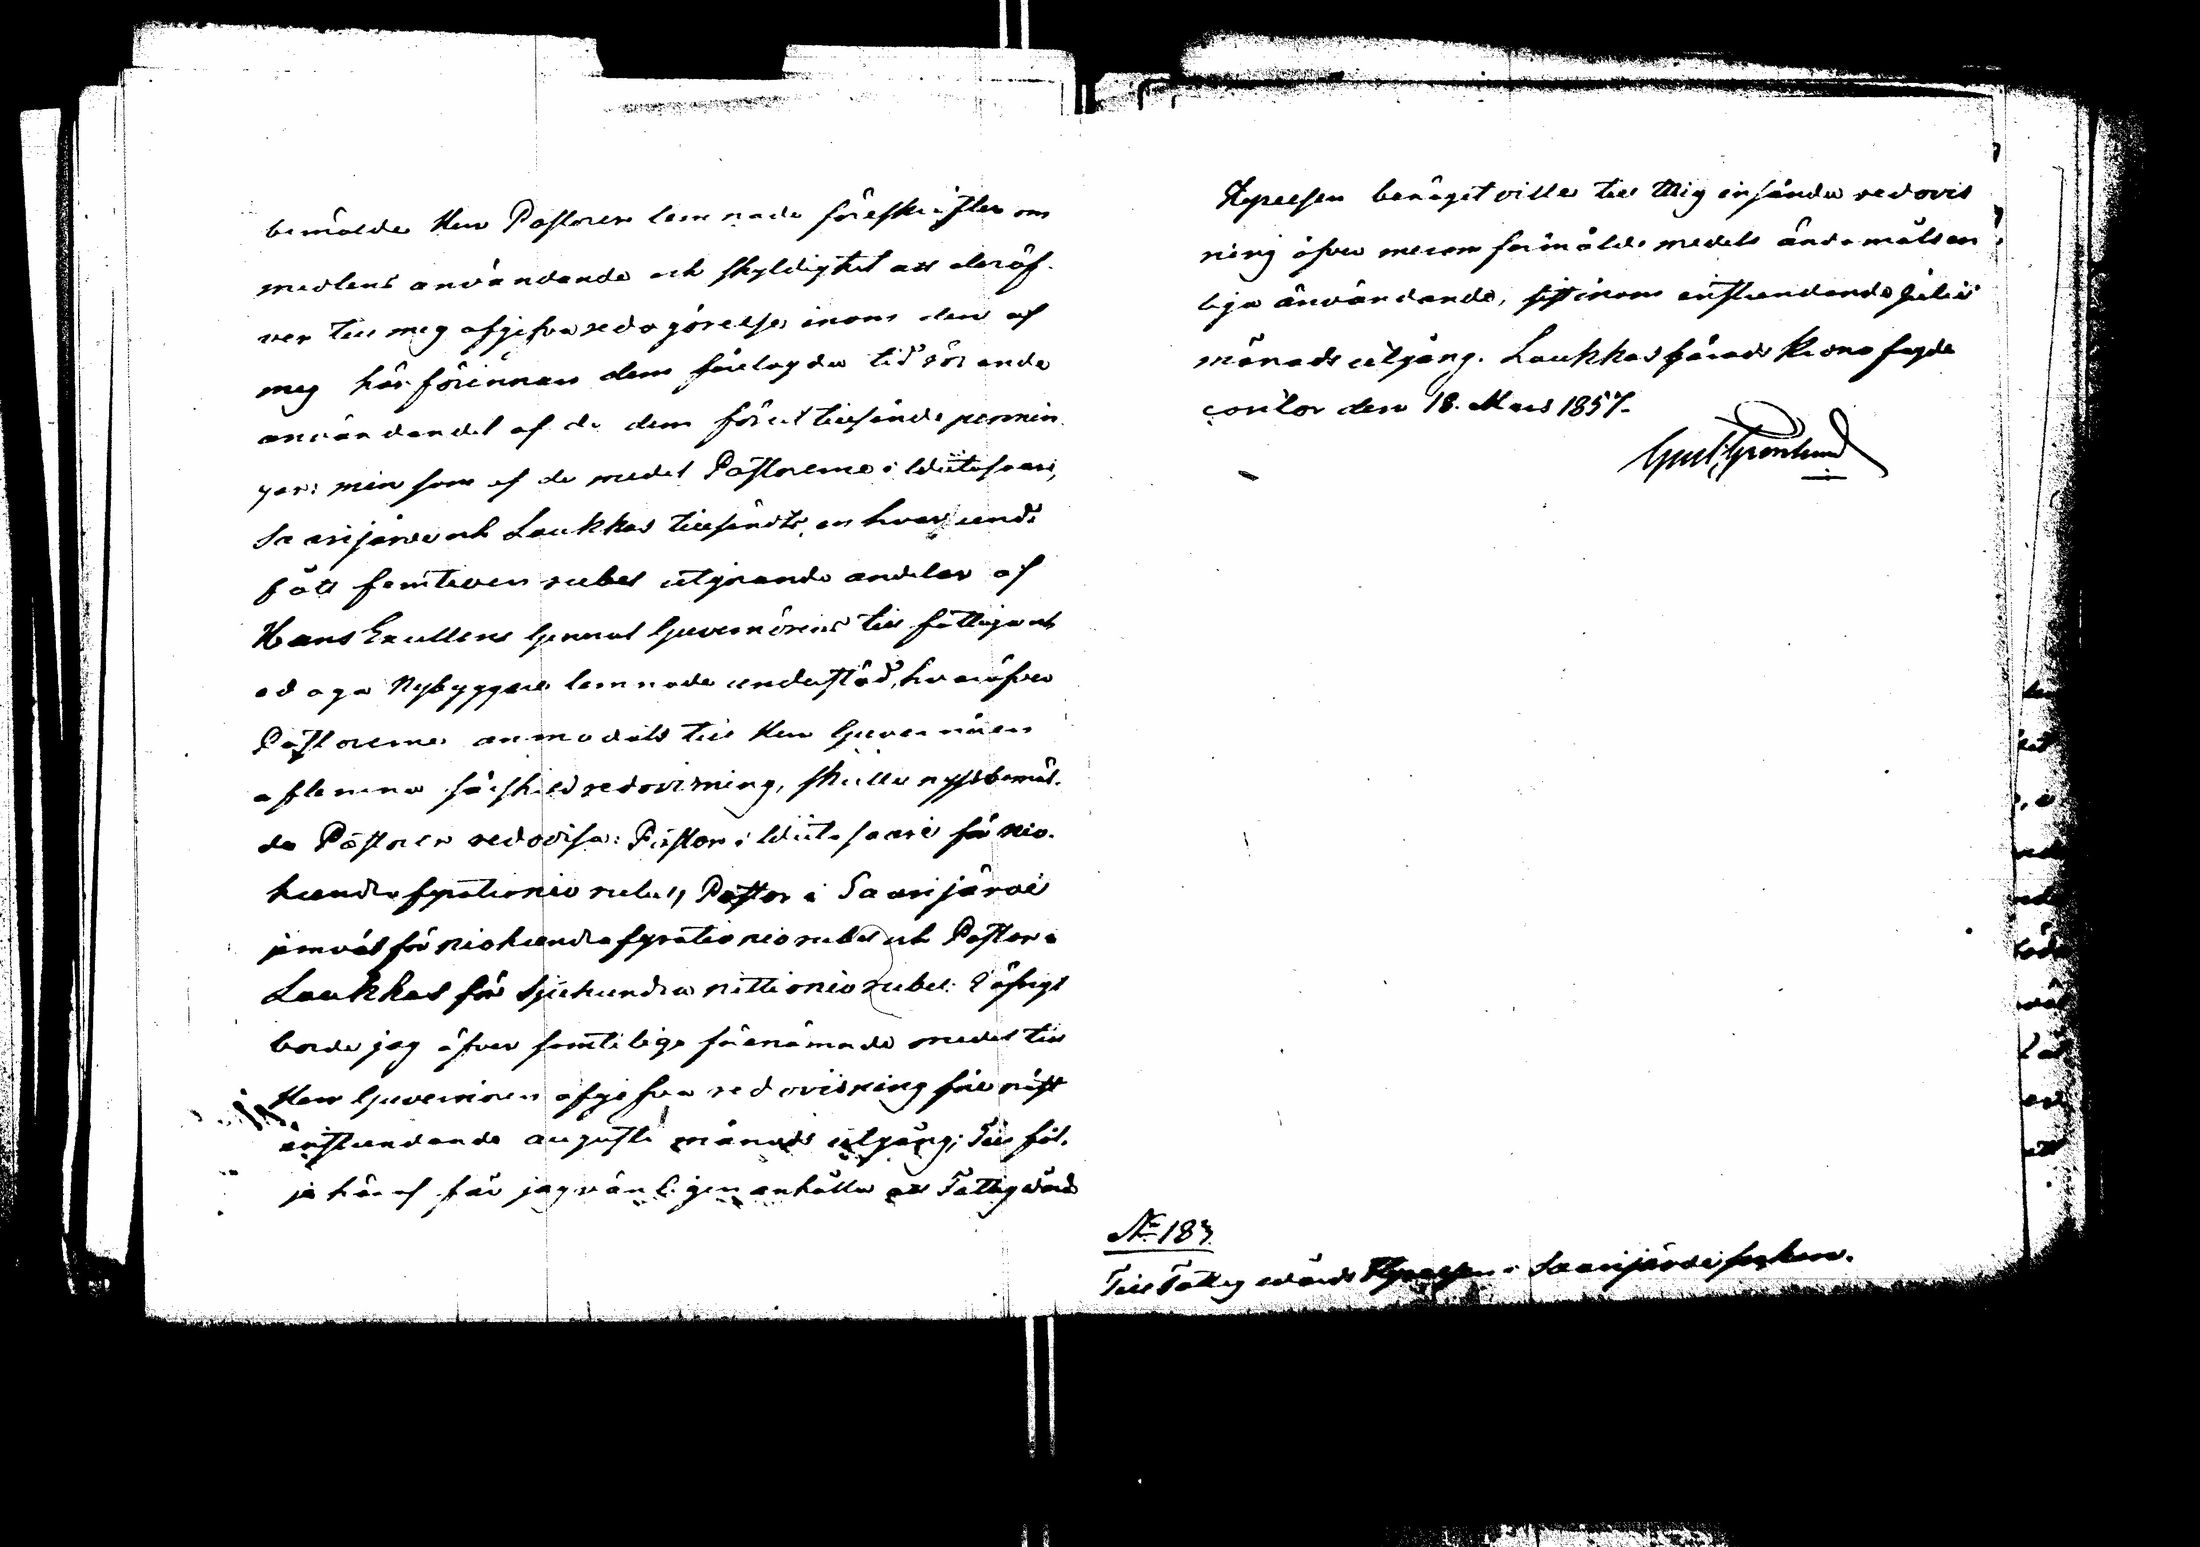 bemälde Herr Pastorer lemnade föreskrifter om
medlens användande och skyldighet att deröf-
ver till mig afgifva redogörelse inom den af
mig härförinnan dem förelagda tid rörande
användandet af de dem förut tillsände pennin
gar: min som af de medel Pastorerne i Wiitasaari,
Saarijärvi och Laukkas tillsändts, en hvar
fått femtioen rubel utgörande andelar af
Hans Excellens General Guvernörens till fattige och
Nybyggare lemnade understöd, hvaröfver
Pastorerne anmodats till Herr Guvernören
aflemna särskild redovisning, skulle nyssbemäl-
de Pastorer redovisa: Pastor i Wiitasaari för nio-
hundrafyrationio rubel, Pastor i Saarijärvi
jemväl för niohundrafyrationio rubel och Pastor i
Laukkas för sjuhundranittionio rubel. I öfrigt
borde jag öfver samtelige förenämnde medel till
Herr Guvernören afgifva redovisning före näst
instundande augusti månads utgång; Till föl-
je häraf får jag vänligen anhålla att Fattigvårds
Styrelsen benäget ville till Mig insända redovis
ning öfver mersomförmälde medels ändamålsen
liga användande, sist inom instundande Julii
månads utgång. Laukkas härads Kronofogde
contor den 18. Mars 1857.
Gust. Grönlund
No 183.
Till Fattigvårds Styrelsen i Saarijärvi socken.